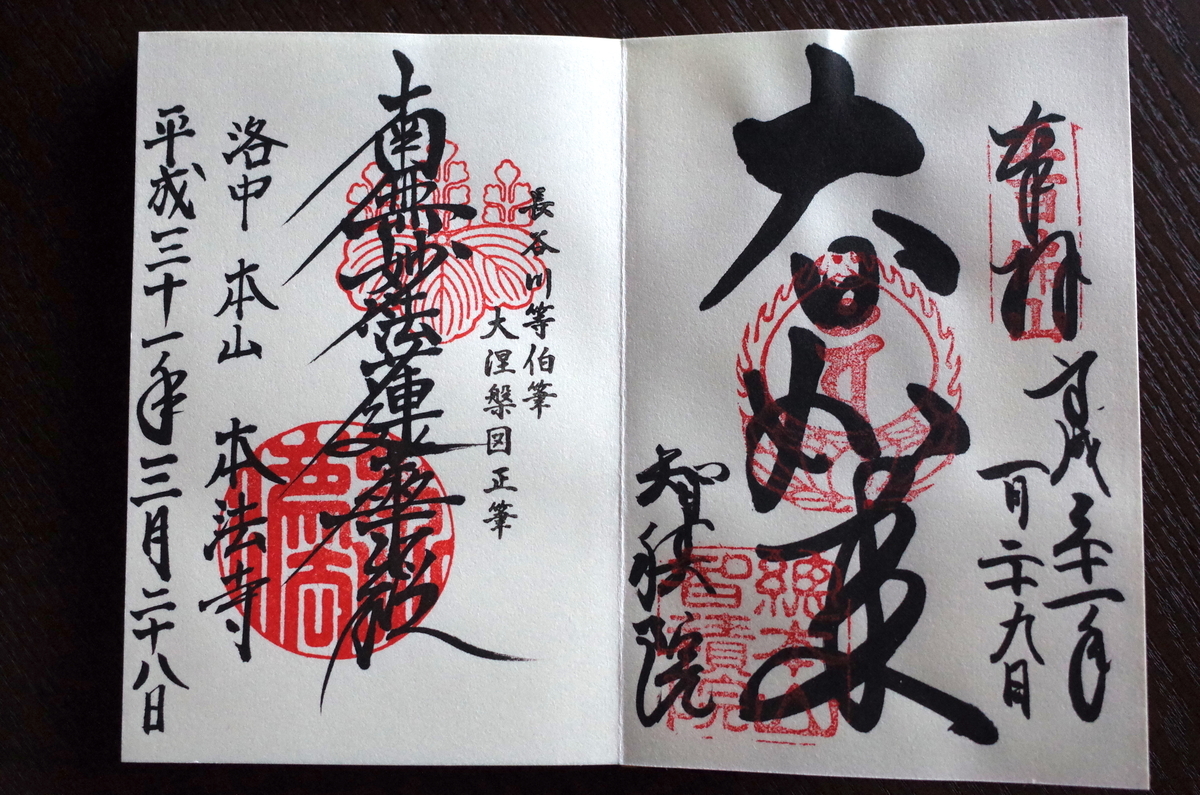 奉拝
平成三十一年
三月二十九日
大日如来
智積院
總本山
智積院
長谷川等伯筆
大涅槃図正筆
南無妙法蓮華経
洛中 本山 本法寺
平成三十一年三月二十八日